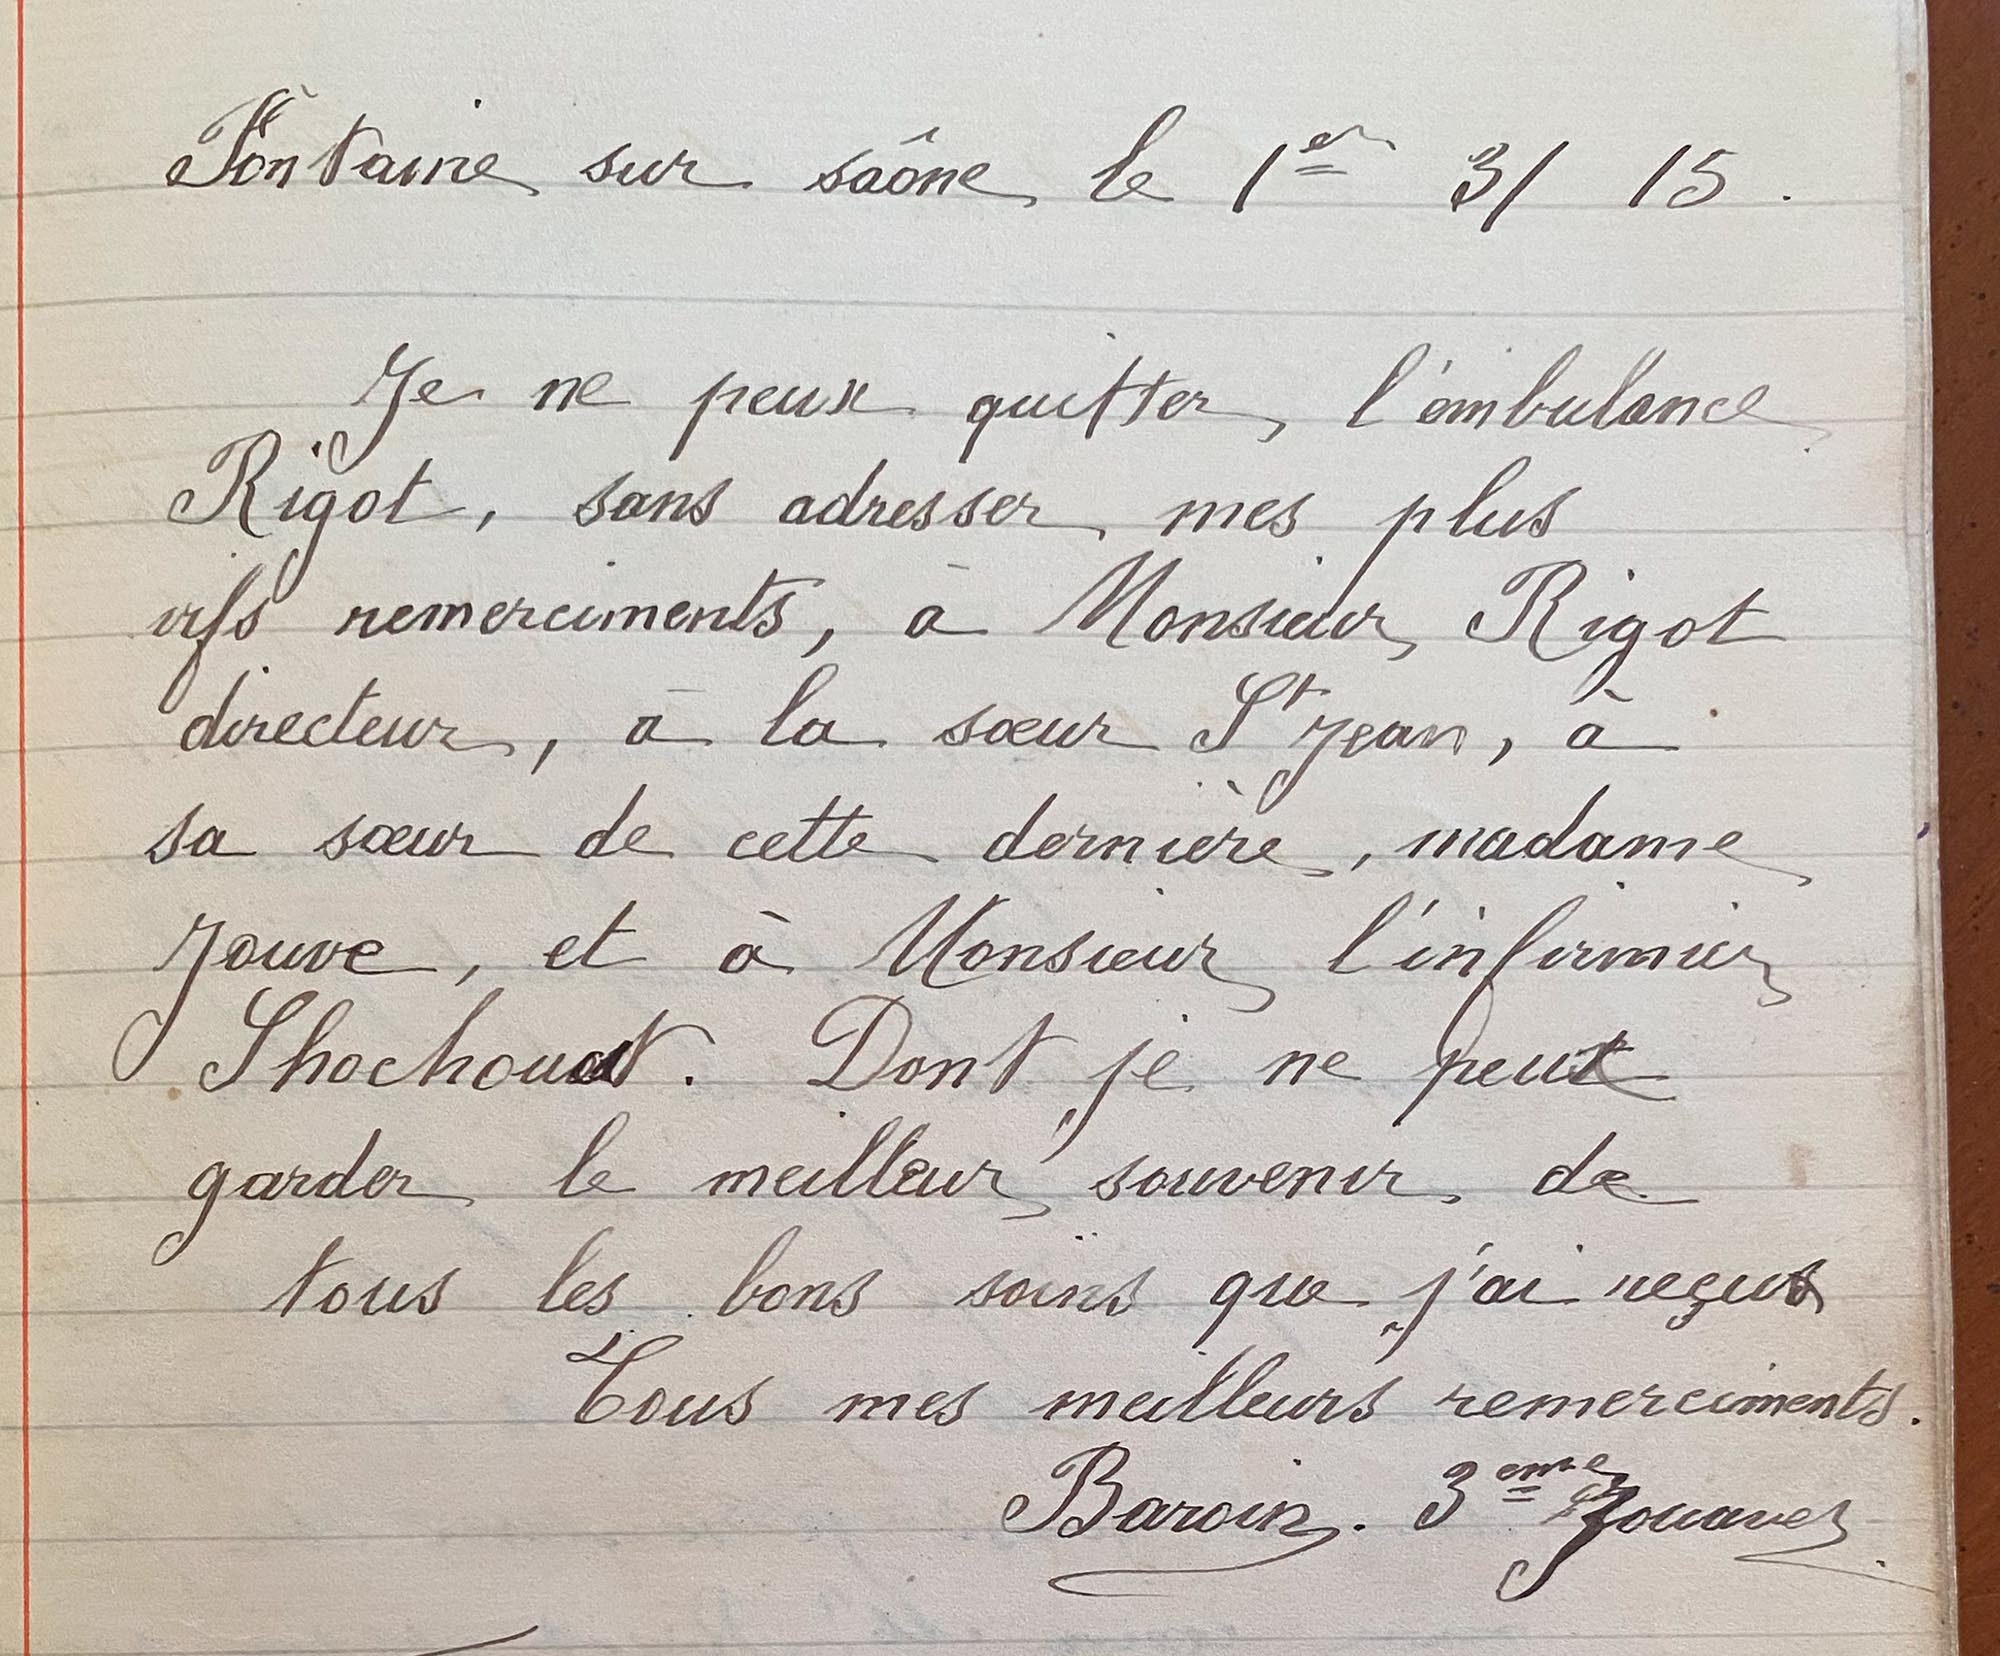 Fontaine sur saône, le 1er 3/ 15.
Je ne peux quitter, l'ambulance
Rigot, sans adresser mes plus
vifs remerciments, à Monsieur Rigot
directeur, à la sœur St Jean, à
sa sœur de cette dernière, madame
Jouve, et à Monsieur l'infirmier
Shochouat. Dont je ne peux
garder le meilleur souvenir de
tous les bons soins que j'ai reçus
Tous mes meilleurs remerciments.
Baroin. 3eme Zouaves